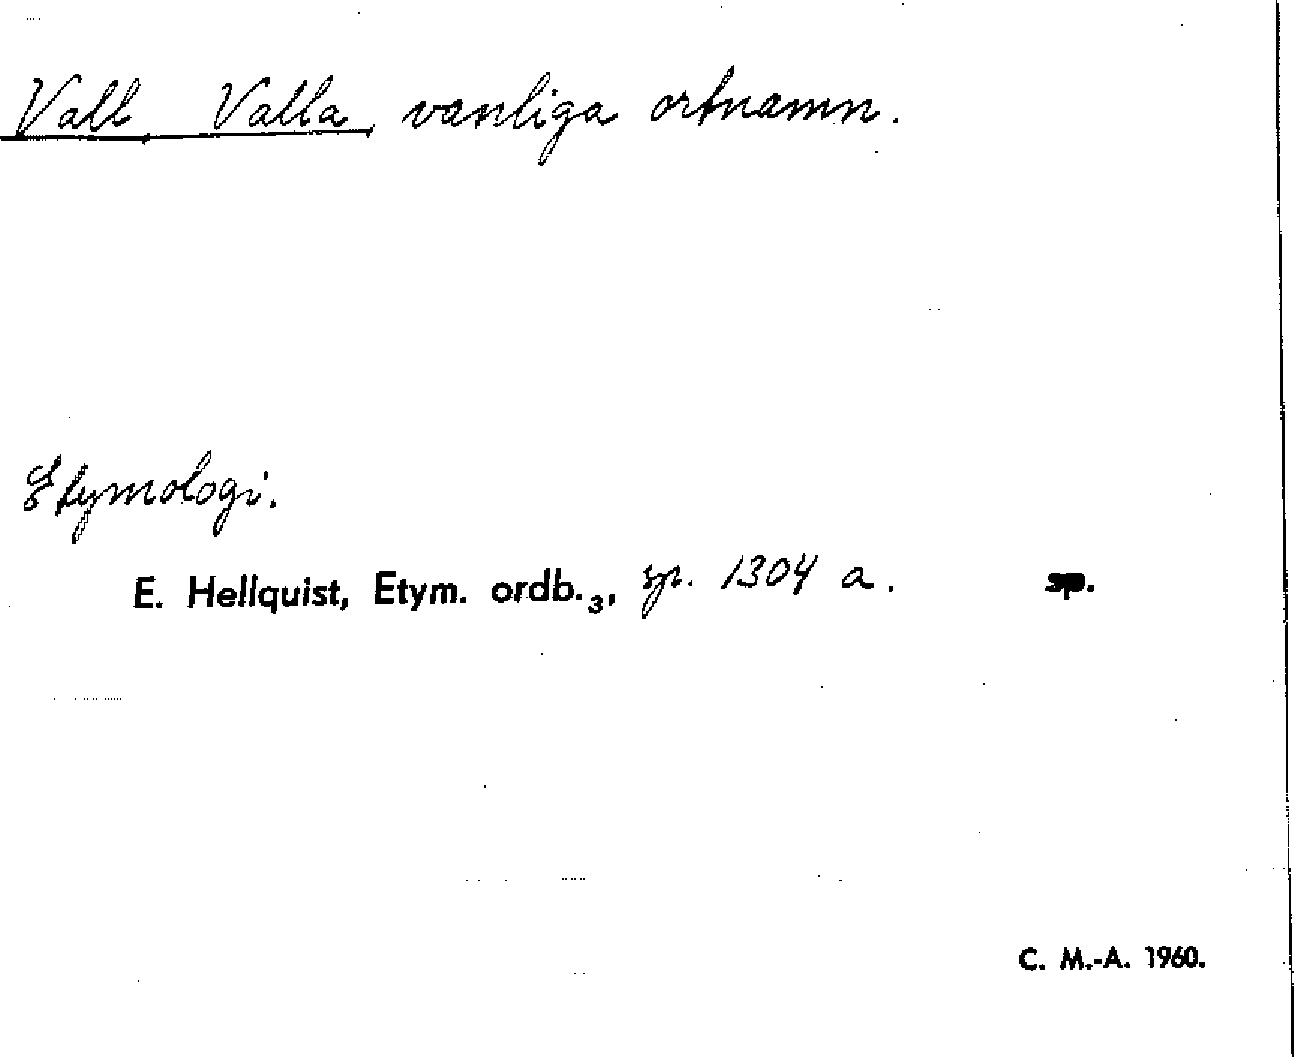 Vall Valla, vanliga ortnamn.
Etymologi.
E. Hellquist, Etym. ordb.₃, sp. 1304 a. sp.
C. M.-A. 1960.